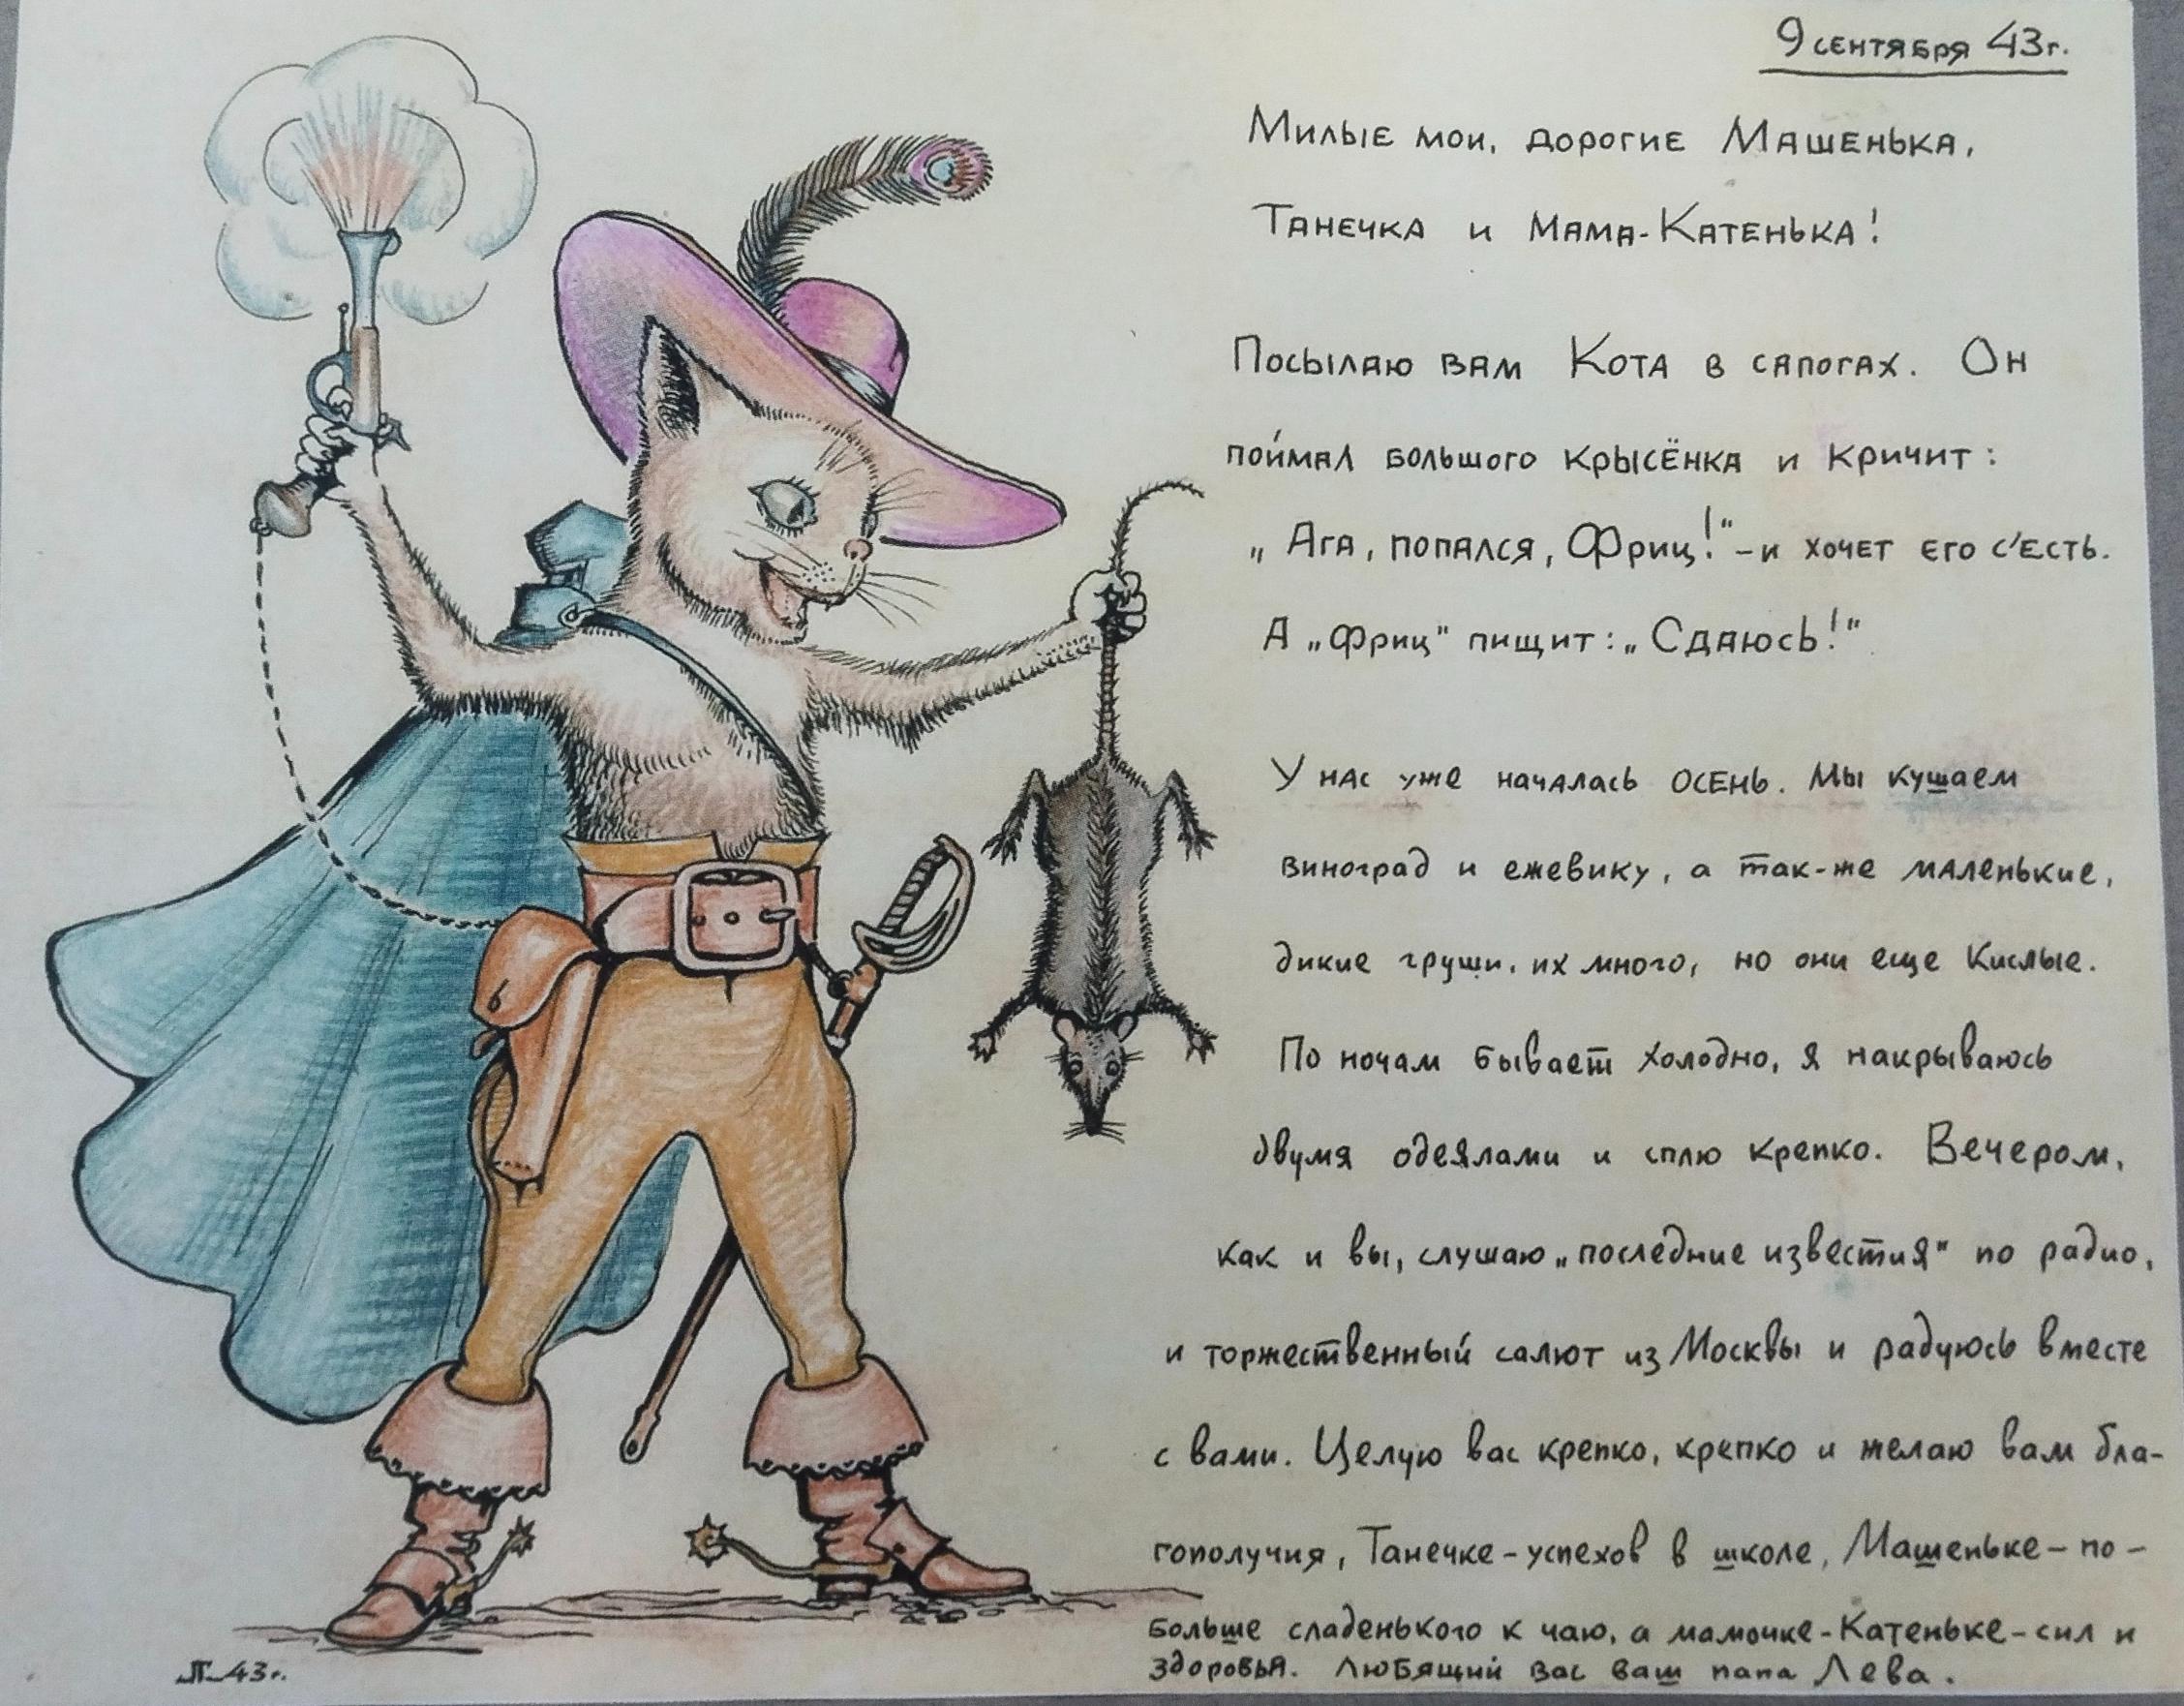 9 сентября 43г.
Милые мои, дорогие Машенька,
Танечка и мама-Катенька!
Посылаю вам Кота в сапогах. Он
поймал большого крысёнка и кричит:
„Ага, попался, Фриц!“ – и хочет его с'есть.
А „Фриц“ пищит: „Сдаюсь!“
У нас уже началась осень. Мы кушаем
виноград и ежевику, а так-же маленькие,
дикие груши, их много, но они еще кислые.
По ночам бывает холодно, я накрываюсь
двумя одеялами и сплю крепко. Вечером,
как и вы, слушаю „последние известия“ по радио,
и торжественный салют из Москвы и радуюсь вместе
с вами. Целую вас крепко, крепко и желаю вам бла-
гополучия, Танечке – успехов в школе, Машеньке – по-
больше сладенького к чаю, а мамочке-Катеньке – сил и
здоровья. Любящий вас ваш папа Лёва.
43г.